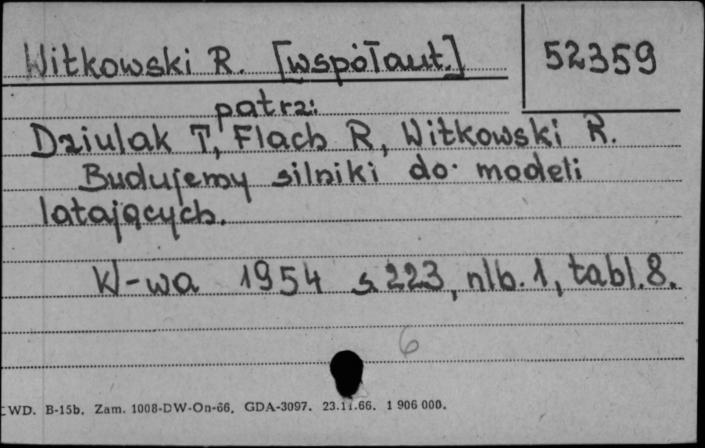 Witkowski R. [współaut.]
52359
patrz:
Dziulak T, Flach R, Witkowski R.
Budujemy silniki do modeli
latających.
W-wa 1954 s. 223, nlb. 1, tabl. 8.
6
WD. B-15b. Zam. 1008-DW-On-66. GDA-3097. 23.11.66. 1 906 000.